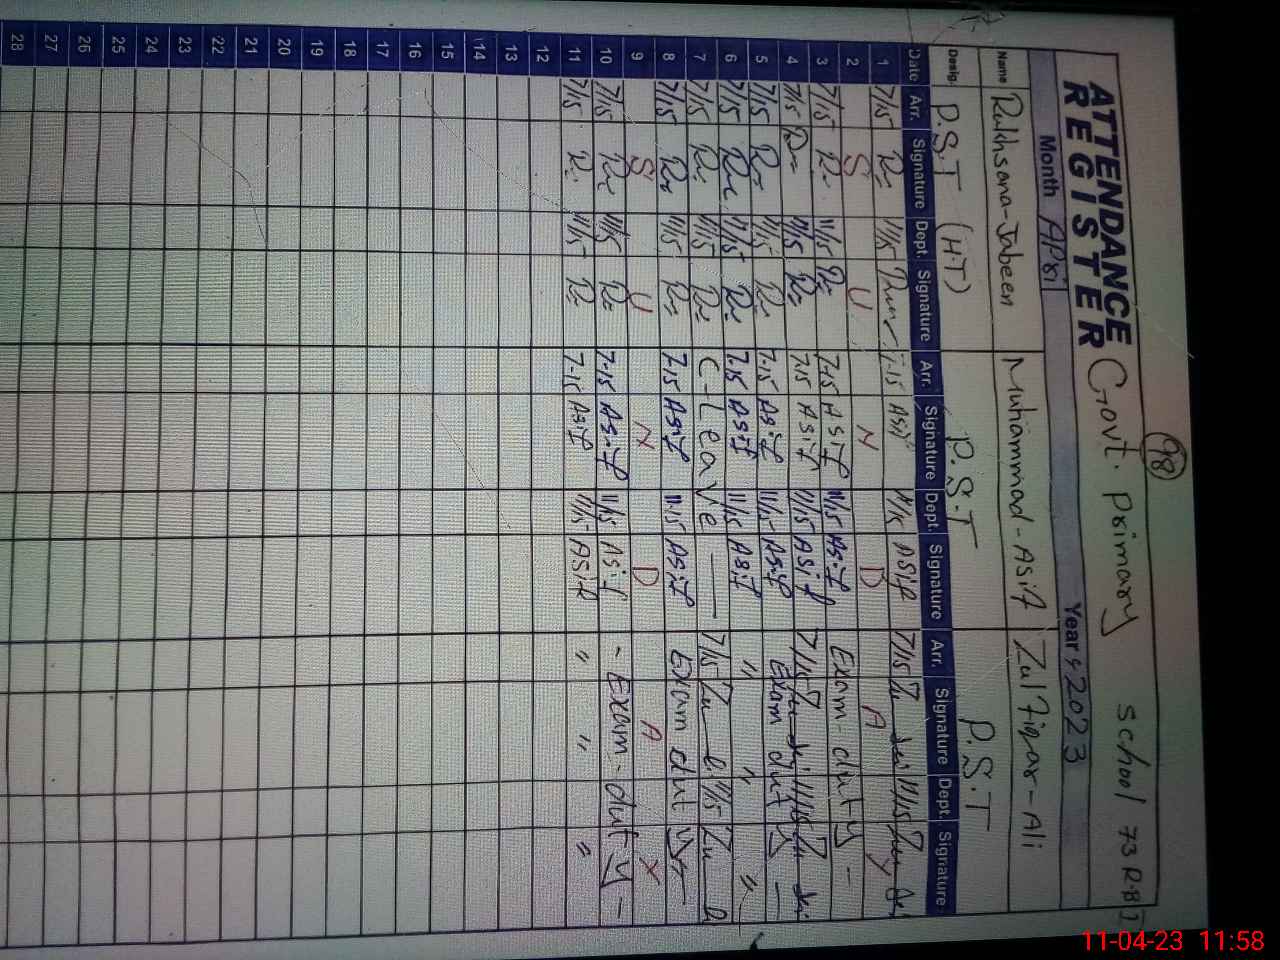 98
ATTENDANCE REGISTER Govt. Primary School 73 R.B
Month April Year 2023
Name Rukhsana-Jabeen Muhammad-Asif Zulfiqar-Ali
Desig. P.S.T (H.T) P.S.T P.S.T
Date Arr. Signature Dept. Signature Arr. Signature Dept. Signature Arr. Signature Dept. Signature
1 7/15 11/15 7-15 Asif 11/15 Asif 7/15 11/15
2 S U N D A Y
3 7/15 11/15 7-15 Asif 11/15 Asif Exam-duty -
4 7/15 11/15 7.15 Asif 11/15 Asif 7/15 11/15
5 7/15 11/15 7.15 Asif 11/15 Asif Exam duty -
6 7/15 11/15 7.15 Asif 11/15 Asif " " "
7 7/15 11/15 C-leave 7/15 11/15
8 7/15 11/15 7.15 Asif 11.15 Asif Exam duty
9 S U N D A Y
10 7/15 11/15 7-15 Asif 11/15 Asif - Exam-duty -
11 7/15 11/15 7-15 Asif 11/15 Asif " " "
12
13
14
15
16
17
18
19
20
21
22
23
24
25
26
27
28
11-04-23 11:58